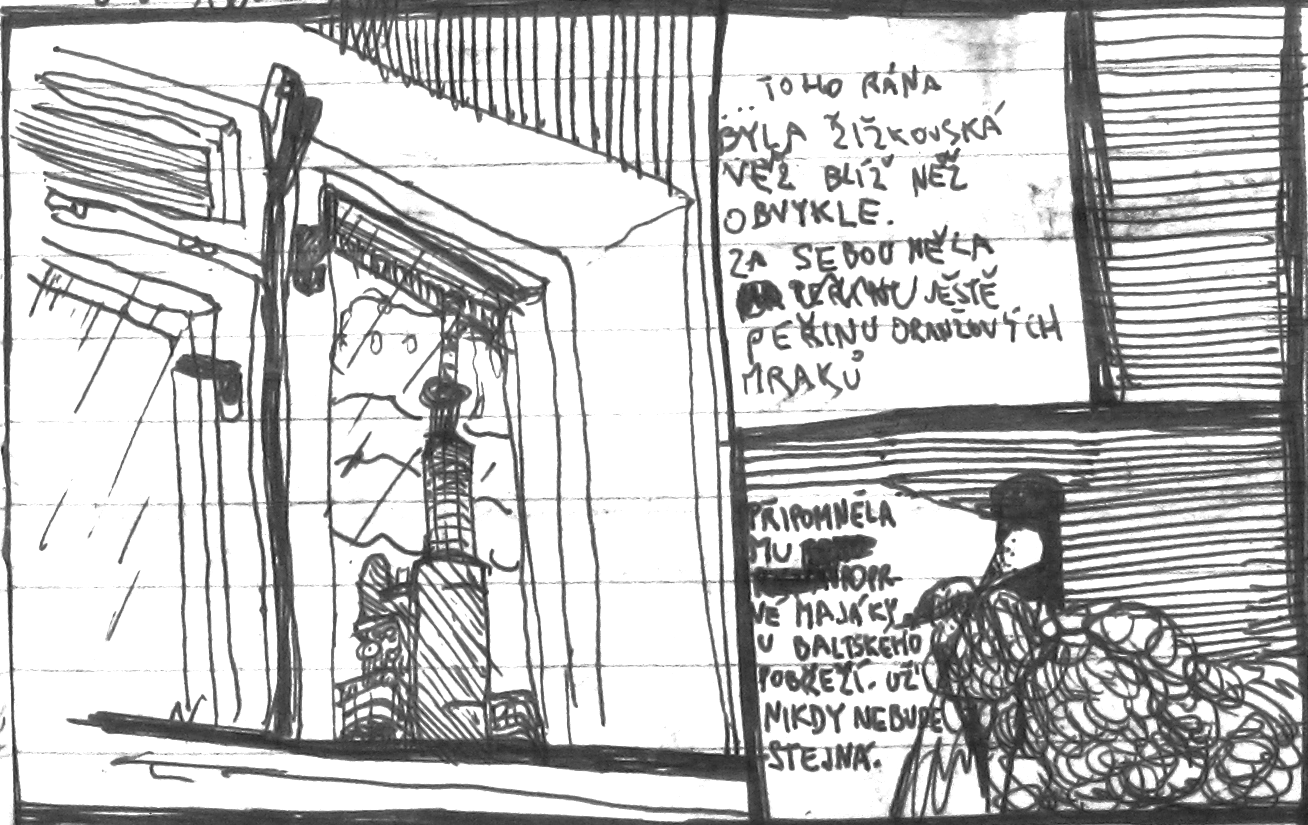 TOHO RÁNA
BYLA ŽIŽKOVSKÁ
VĚŽ BLÍŽ NĚŽ
OBVYKLE.
ZA SEBOU MĚLA
JEŠTĚ
PEŘINU ORANŽOVÝCH
MRAKŮ
PŘIPOMNĚLA
MU
VÉ MAJÁKY
U BALTSKEHO
POBŘEŽÍ. UŽ
NIKDY NEBUDE
STEJNÁ.